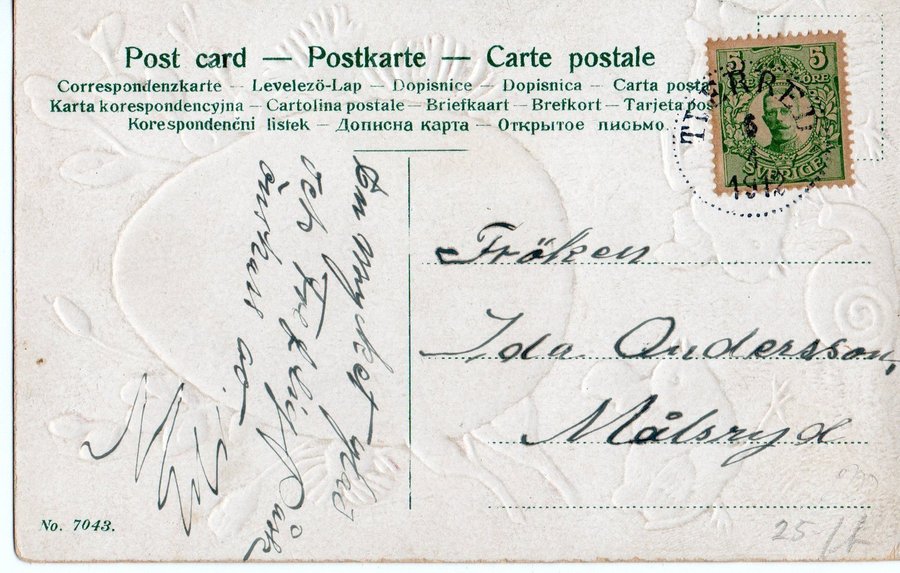 Post card — Postkarte — Carte postale
Correspondenzkarte — Levelező-Lap — Dopisnice — Dopisnica — Carta posta
Karta korespondencyjna — Cartolina postale — Briefkaart — Brefkort — Tarjeta pos
Korespondenční listek — Дописна карта — Открытое письмо.
5 5
ÖRE
SVERIGE
6
1912
En Mycket glad
och Treflig Påsk
önskas av
Fröken
Ida Andersson,
Målsryd
No. 7043.
25-